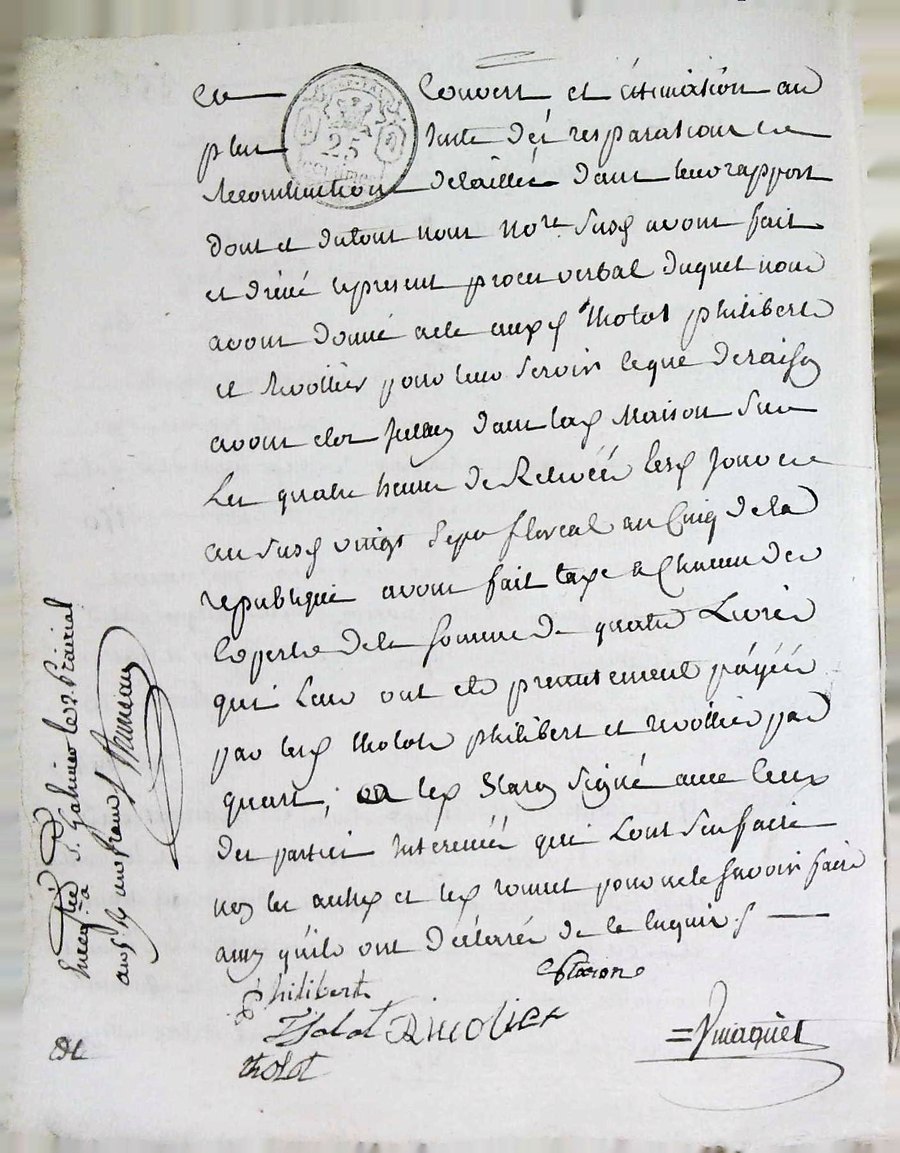 ce couvert et estimation au
plus juste des resparations et
reconstructions detaillés dans leur rapport
dont et dutout nous nore. susd avons fait
et dréssé le present proces verbal duquel nous
avons donné acte auxd tholot philibert
et Rivollier pour leur servir ceque deraison
avons clos dans lad Maison sur
Les quatre heures de Relevée lesd jour et
an susd vingt sept floreal an Cinq dela
republique avons fait taxe a Chacun des
Experts dela somme de quatre Livres
qui Leur ont ete presentement payées
par lesd tholots philibert et rivollier par
quart, led Staron signé avec Ceux
des parties interessées qui Lont sçu faire
non les autres et led pour ne le sçavoir faire
ainsy quils ont déclarés de ce enquis /.
Staron
philibert
Tholot Rivolier
tholot
= Pmaquet
25
Enreg.ré à S. Galmier le 2 Prairial
an 5